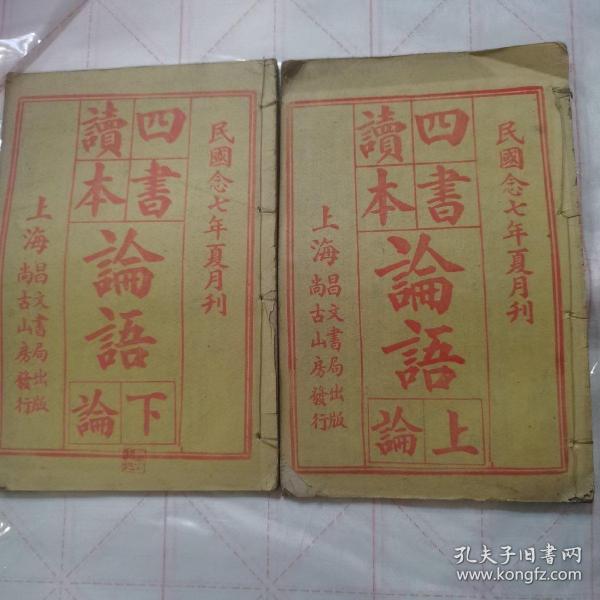 民國念七年夏月刊
四書
讀本
論語
上論
上海昌文書局出版
尚古山房發行
民國念七年夏月刊
四書
讀本
論語
下論
上海昌文書局出版
尚古山房發行
孔夫子旧书网
www.kongfz.com